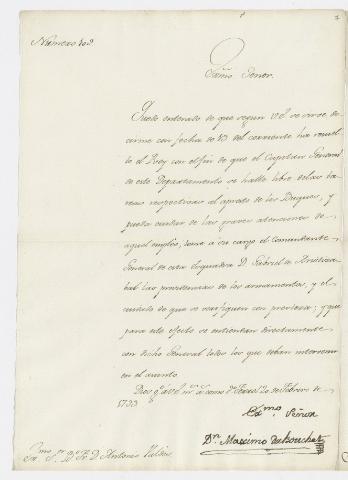 Número 102
Exmo. Señor.
Quedo enterado de que segun V.E. se sirve de-
cirme con fecha de 15 del corriente ha resuel-
to el Rey con el fin de que el Capitan General
de este Departamento se halle libre de las ta-
reas respectivas al apresto de los Buques, y
pueda cuidar de las graves atenciones de
aquel empleo, tome a su cargo el Comandante
General de esta Esquadra D. Gabriel de Aristiza-
bal las providencias de los armamentos, y el
cuidado de que se verifiquen con presteza; y que
para este efecto se entiendan directamente
con dicho General todos los que deban intervenir
en el asunto.
Dios gue. a V.E. ms. as. como 20 de Febrero de
1793.
Exmo. Señor
Dn. Maximo du Bouchet
Exmo. Sr. Bo. Fr. D. Antonio Valdés